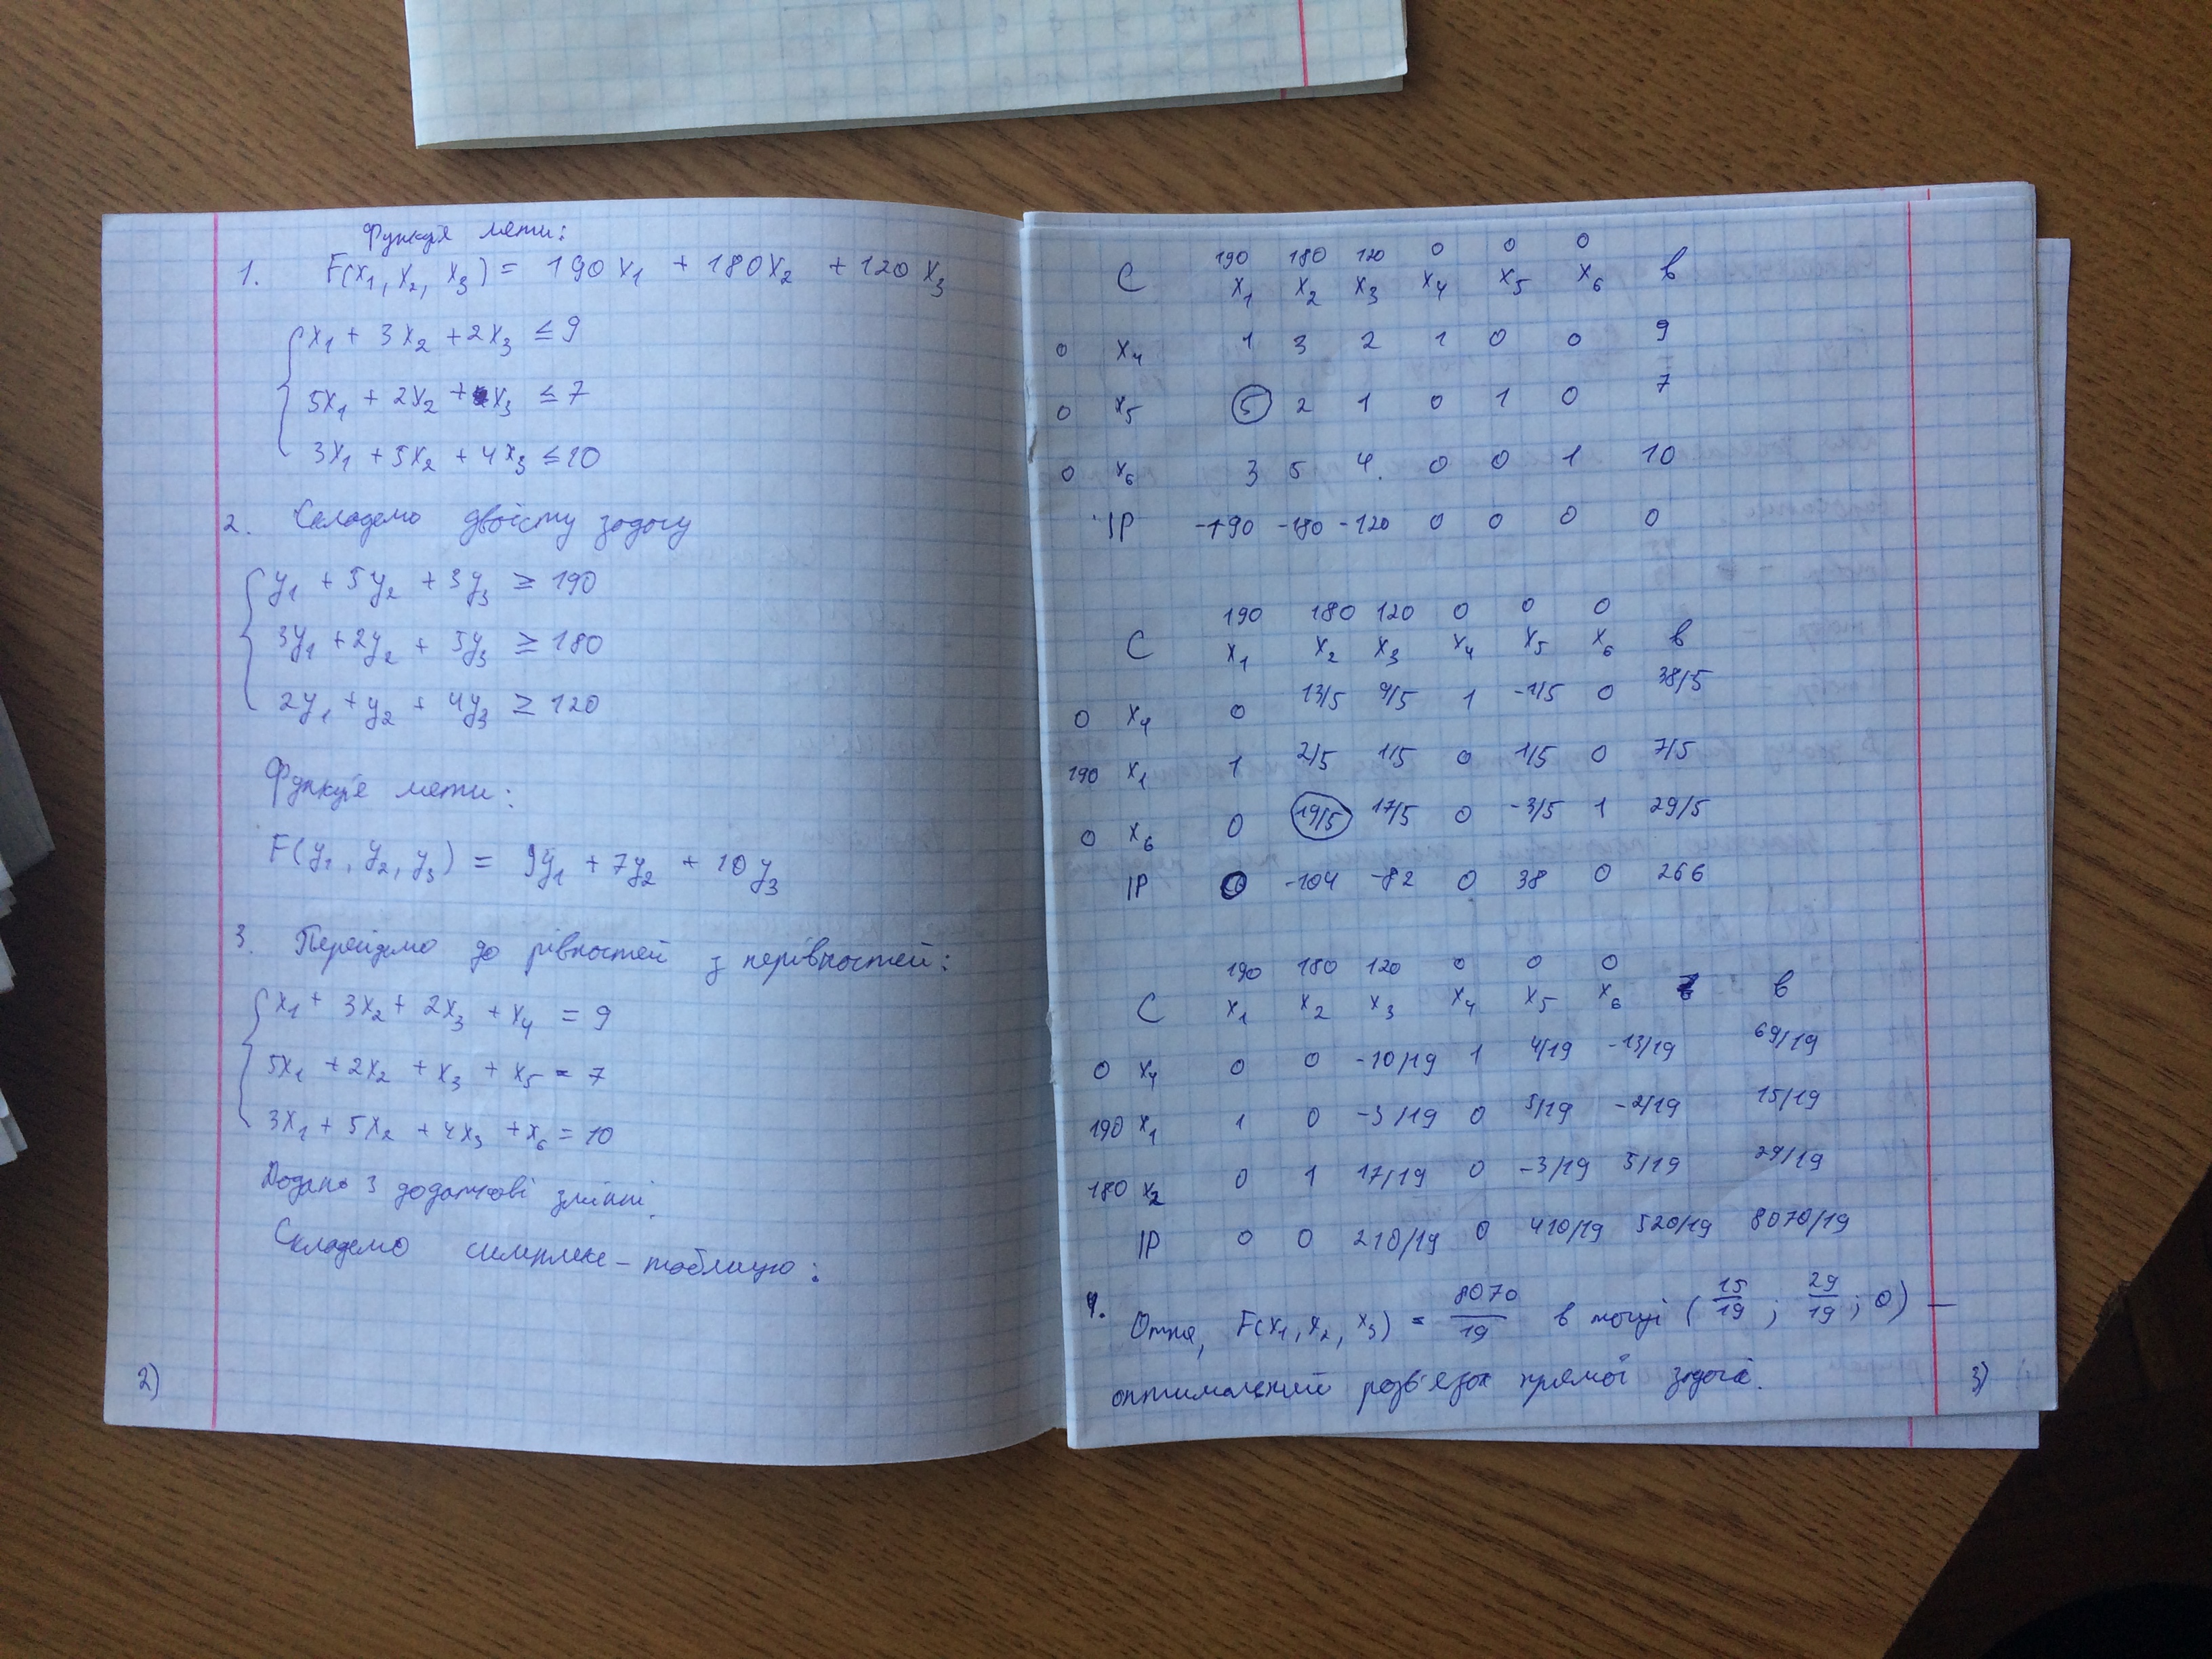 Функція мети:
1. F(x₁, x₂, x₃) = 190x₁ + 180x₂ + 120x₃
x₁ + 3x₂ + 2x₃ ≤ 9
5x₁ + 2x₂ + x₃ ≤ 7
3x₁ + 5x₂ + 4x₃ ≤ 10
2. Складемо двоїсту задачу
y₁ + 5y₂ + 3y₃ ≥ 190
3y₁ + 2y₂ + 5y₃ ≥ 180
2y₁ + y₂ + 4y₃ ≥ 120
Функція мети:
F(y₁, y₂, y₃) = 9y₁ + 7y₂ + 10y₃
3. Перейдемо до рівностей з нерівностей:
x₁ + 3x₂ + 2x₃ + x₄ = 9
5x₁ + 2x₂ + x₃ + x₅ = 7
3x₁ + 5x₂ + 4x₃ + x₆ = 10
Додано 3 додаткові змінні.
Складемо симплекс-таблицю:
2)
190 180 120 0 0 0
C x₁ x₂ x₃ x₄ x₅ x₆ b
0 x₄ 1 3 2 1 0 0 9
0 x₅ 5 2 1 0 1 0 7
0 x₆ 3 5 4 0 0 1 10
ІР -190 -180 -120 0 0 0 0
190 180 120 0 0 0
C x₁ x₂ x₃ x₄ x₅ x₆ b
0 x₄ 0 13/5 9/5 1 -1/5 0 38/5
190 x₁ 1 2/5 1/5 0 1/5 0 7/5
0 x₆ 0 19/5 17/5 0 -3/5 1 29/5
ІР 0 -104 -82 0 38 0 266
190 180 120 0 0 0
C x₁ x₂ x₃ x₄ x₅ x₆ b
0 x₄ 0 0 -10/19 1 4/19 -13/19 69/19
190 x₁ 1 0 -3/19 0 5/19 -2/19 15/19
180 x₂ 0 1 17/19 0 -3/19 5/19 29/19
ІР 0 0 210/19 0 410/19 520/19 8070/19
4. Отже, F(x₁, x₂, x₃) = 8070/19 в точці (15/19; 29/19; 0) —
оптимальний розв'язок прямої задачі.
3)